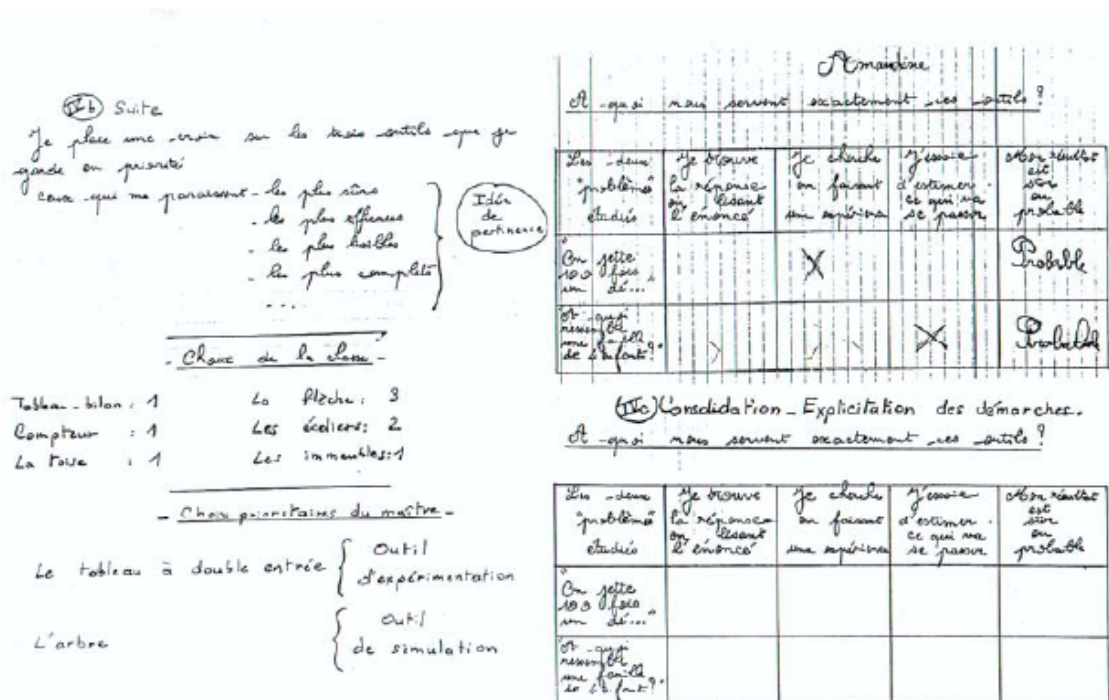 IVb Suite
Je place une croix sur les trois outils que je
garde en priorité
ceux qui me paraissent - les plus sûrs
- les plus efficaces
- les plus lisibles
- les plus complets
....
Idée
de
pertinence
- Choix de la classe -
Tableau-bilan : 1 La flèche : 3
Compteur : 1 Les écoliers : 2
La toise : 1 Les immeubles : 1
- Choix prioritaires du maître -
Le tableau à double entrée { Outil
d'expérimentation
L'arbre { Outil
de simulation
Amandine
A quoi nous servent exactement ces outils ?
Les deux
"problèmes"
étudiés
Je trouve
la réponse
en lisant
l'énoncé
Je cherche
en faisant
une expérience
J'essaie
d'estimer
ce qui va
se passer
Mon résultat
est
sûr
ou
probable
"On jette
100 fois
un dé..."
X
Probable
"A quoi
ressemble
une famille
de enfants ?"
X
Probable
IVc Consolidation - Explicitation des démarches.
A quoi nous servent exactement ces outils ?
Les deux
"problèmes"
étudiés
Je trouve
la réponse
en lisant
l'énoncé
Je cherche
en faisant
une expérience
J'essaie
d'estimer
ce qui va
se passer
Mon résultat
est
sûr
ou
probable
"On jette
100 fois
un dé..."
"A quoi
ressemble
une famille
de enfants ?"